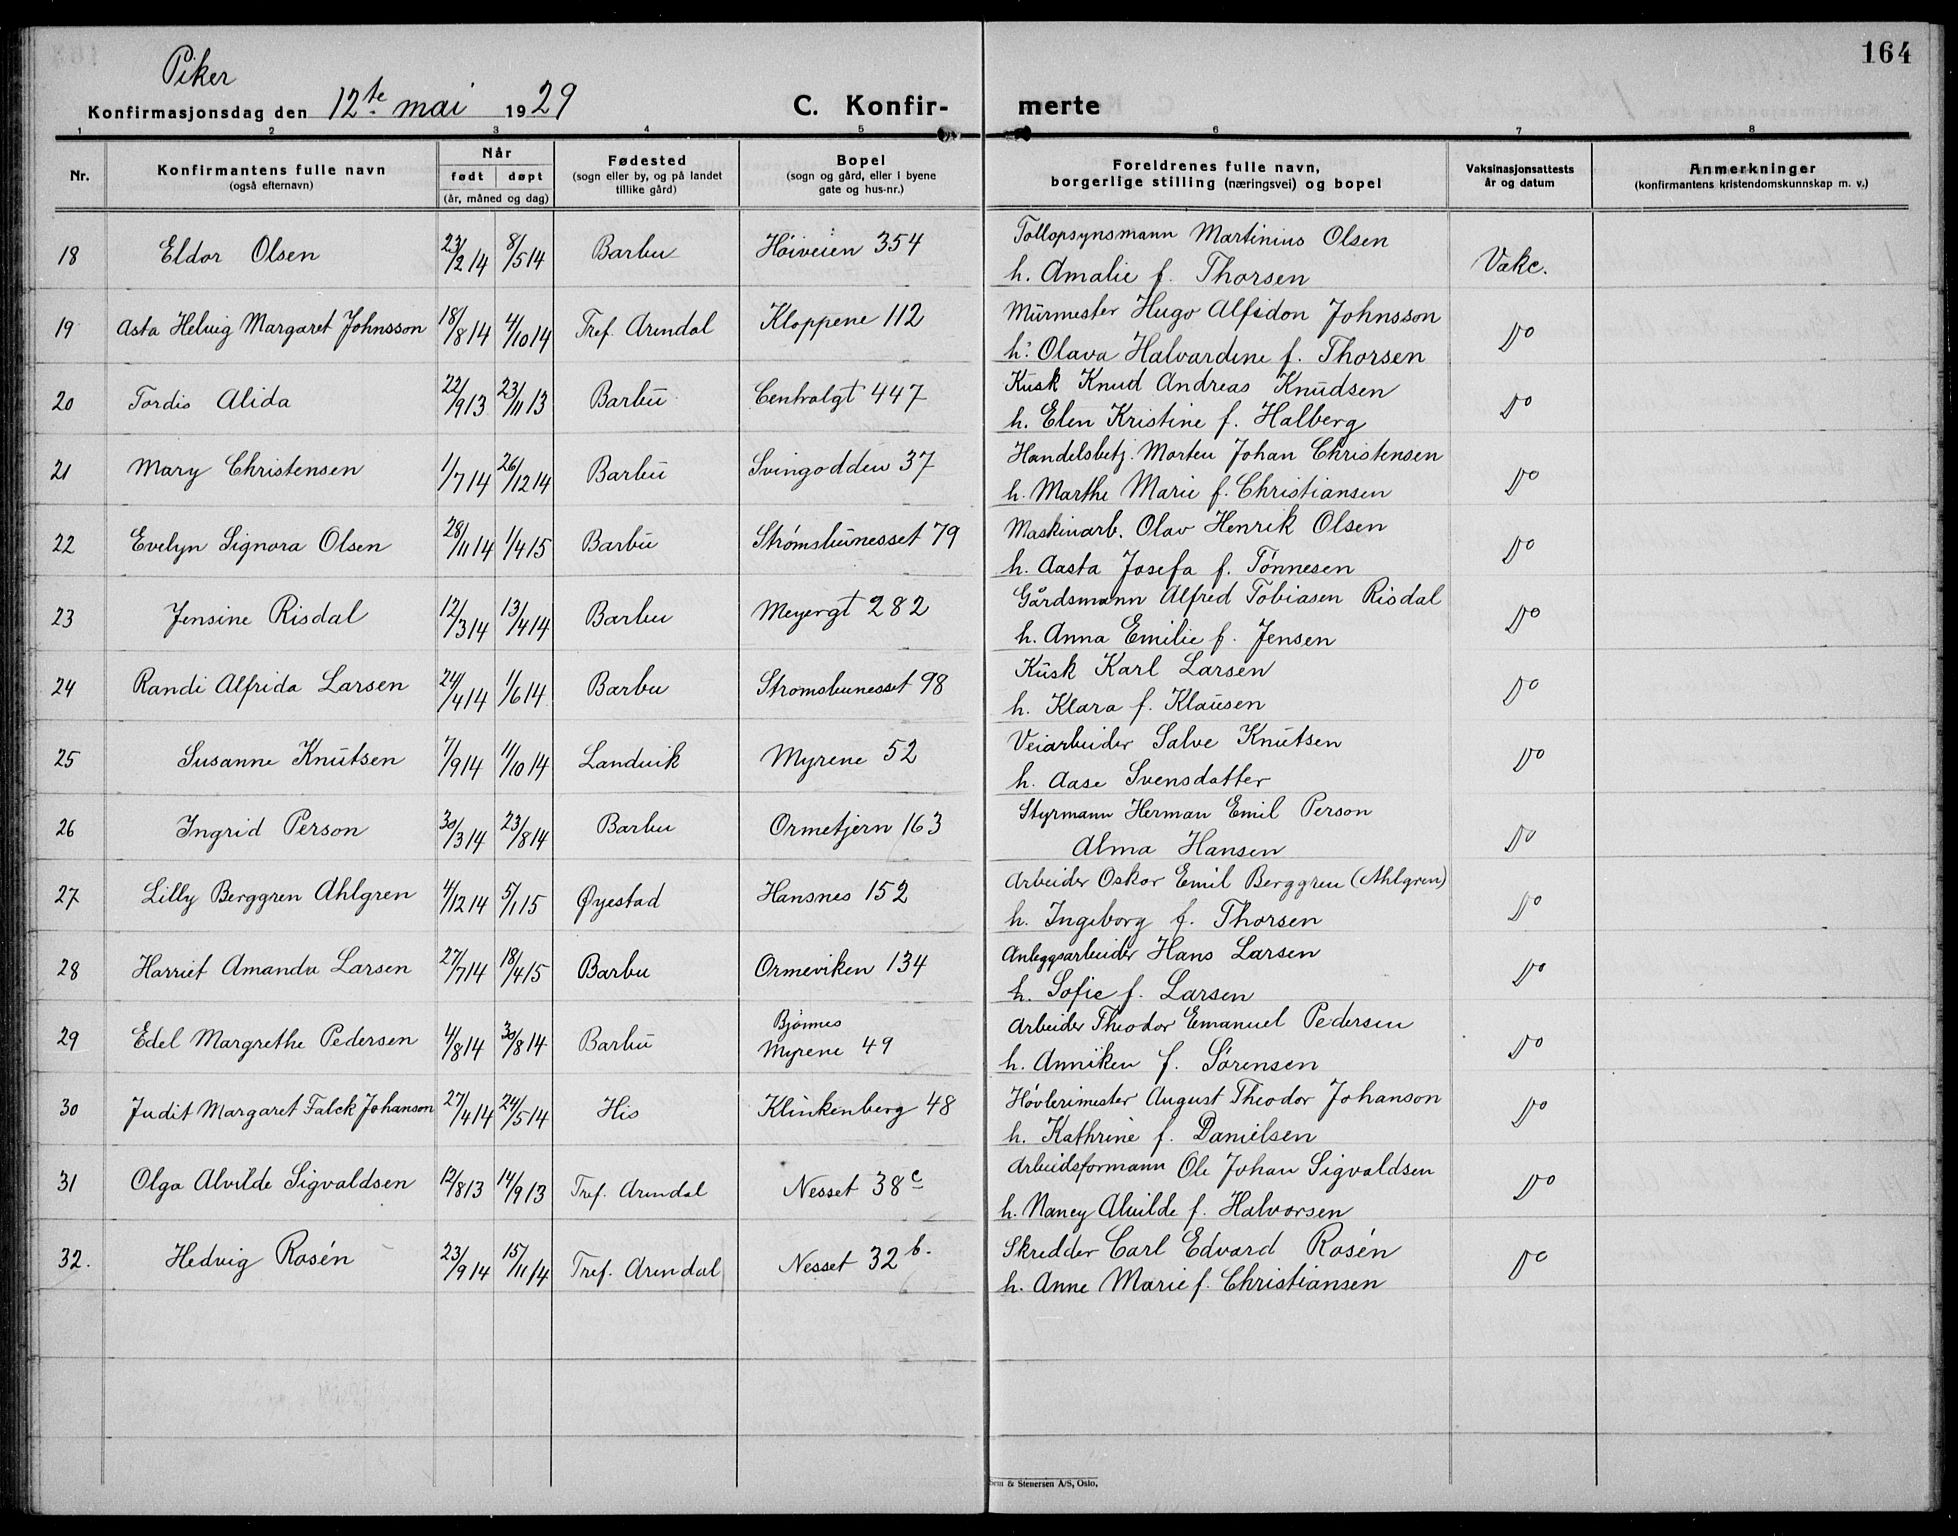 164
Piker
Konfirmasjonsdag den 12te mai 1929 C. Konfir- merte
1 2 3 4 5 6 7 8
Nr. Konfirmantens fulle navn (også efternavn) Når født døpt (år, måned og dag) Fødested (sogn eller by, og på landet tillike gård) Bopel (sogn og gård, eller i byene gate og hus-nr.) Foreldrenes fulle navn, borgerlige stilling (næringsvei) og bopel Vaksinasjonsattests år og datum Anmerkninger (konfirmantens kristendomskunnskap m. v.)
18 Eldor Olsen 23/2 14 8/5 14 Barbu Høiveien 354 Tollopsynsmann Martinius Olsen Vakc.
h. Amalie f. Thorsen
19 Asta Helvig Margaret Johnsson 18/8 14 4/10 14 Tref. Arendal Kloppene 112 Murmester Hugo Alfidon Johnsson Do
h. Olava Halvardine f. Thorsen
20 Tordis Alida 22/9 13 23/11 13 Barbu Centralgt 447 Kusk Knud Andreas Knudsen Do
h. Elen Kristine f. Halberg
21 Mary Christensen 1/7 14 26/12 14 Barbu Svingodden 37 Handelsbetj. Morten Johan Christensen Do
h. Marthe Marie f. Christiansen
22 Evelyn Signora Olsen 28/11 14 1/4 15 Barbu Strømsbunesset 79 Maskinarb. Olav Henrik Olsen Do
h. Aasta Josefa f. Tønnesen
23 Jensine Risdal 12/3 14 13/4 14 Barbu Meyergt 282 Gårdsmann Alfred Tobiasen Risdal Do
h. Anna Emilie f. Jensen
24 Randi Alfrida Larsen 24/4 14 1/6 14 Barbu Strømsbunesset 98 Kusk Karl Larsen Do
h. Klara f. Klausen
25 Susanne Knutsen 7/9 14 11/10 14 Landvik Myrene 52 Veiarbeider Salve Knutsen Do
h. Aase Svensdatter
26 Ingrid Person 30/3 14 23/8 14 Barbu Ormetjern 163 Styrmann Herman Emil Person Do
Alma Hansen
27 Lilly Berggren Ahlgren 4/12 14 5/1 15 Øyestad Hansnes 152 Arbeider Oskar Emil Berggren (Ahlgren) Do
h. Ingeborg f. Thorsen
28 Harriet Amanda Larsen 27/7 14 18/4 15 Barbu Ormeviken 134 Anleggsarbeider Hans Larsen Do
h. Sofie f. Larsen
29 Edel Margrethe Pedersen 4/8 14 30/8 14 Barbu Bjønnes Myrene 49 Arbeider Theodor Emanuel Pedersen Do
h. Anniken f. Sørensen
30 Judit Margaret Falck Johanson 27/4 14 24/5 14 His Klinkenberg 48 Høvlerimester August Theodor Johanson Do
h. Kathrine f. Danielsen
31 Olga Alvilde Sigvaldsen 12/8 13 14/9 13 Tref. Arendal Nesset 38c Arbeidsformann Ole Johan Sigvaldsen Do
h. Nancy Alvilde f. Halvorsen
32. Hedvig Rosén 23/9 14 15/11 14 Tref. Arendal Nesset 32b. Skredder Carl Edvard Rosén Do
h. Anne Marie f. Christiansen
& Stenersen A/S, Oslo.